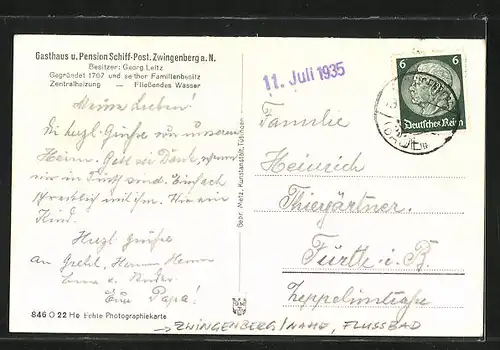 Gasthaus u. Pension Schiff-Post. Zwingenberg a. N.
Besitzer: Georg Leitz
Gegründet 1767 und seither Familienbesitz
Zentralheizung — Fließendes Wasser
Meine Lieben!
Die herzl. Grüße von unserem
Heim. Gott sei Dank,
wir in sind. Einfach
Kind.
Herzl. Grüße
an Gretel, Herrn
u. Kinder.
Euer Papa!
846 O 22 He Echte Photographiekarte
Gebr. Metz, Kunstanstalt, Tübingen
11. Juli 1935
6 6
Deutsches Reich
Familie
Heinrich
Thiergärtner.
Fürth i. B
Zeppelinstraße
→ ZWINGENBERG/NAHE, FLUSSBAD